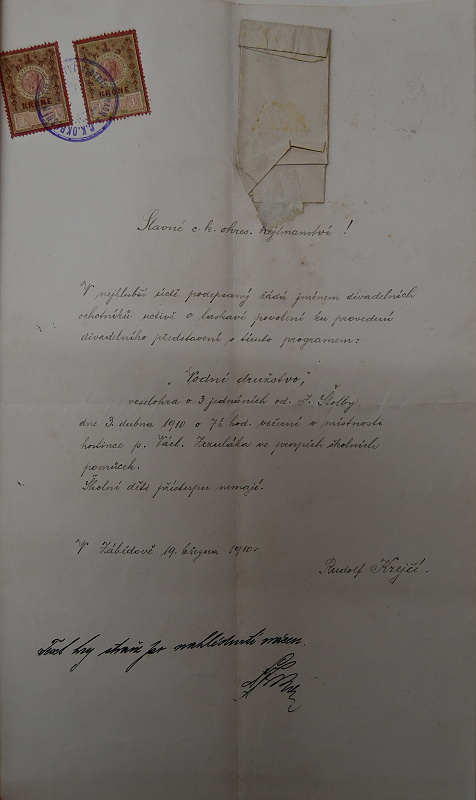 KRONE KRONE
C.K.OKR
Slavné c. k. okres. hejtmanství!
V nejhlubší úctě podepsaný žádá jménem divadelních
ochotníků uctivě o laskavé povolení ku provedení
divadelního představení s tímto programem:
„Vodní družstvo,"
veselohra o 3 jednáních od. J. Štolby,
dne 3. dubna 1910 o 7½ hod. večerní v místnosti
hostince p. Václ. Zezuláka ve prospěch školních
pomůcek.
Školní děti přístupu nemají.
V Zábědově 19. března 1910.
Rudolf Krejčí.
Text hry straně po nahlédnutí vrácen.